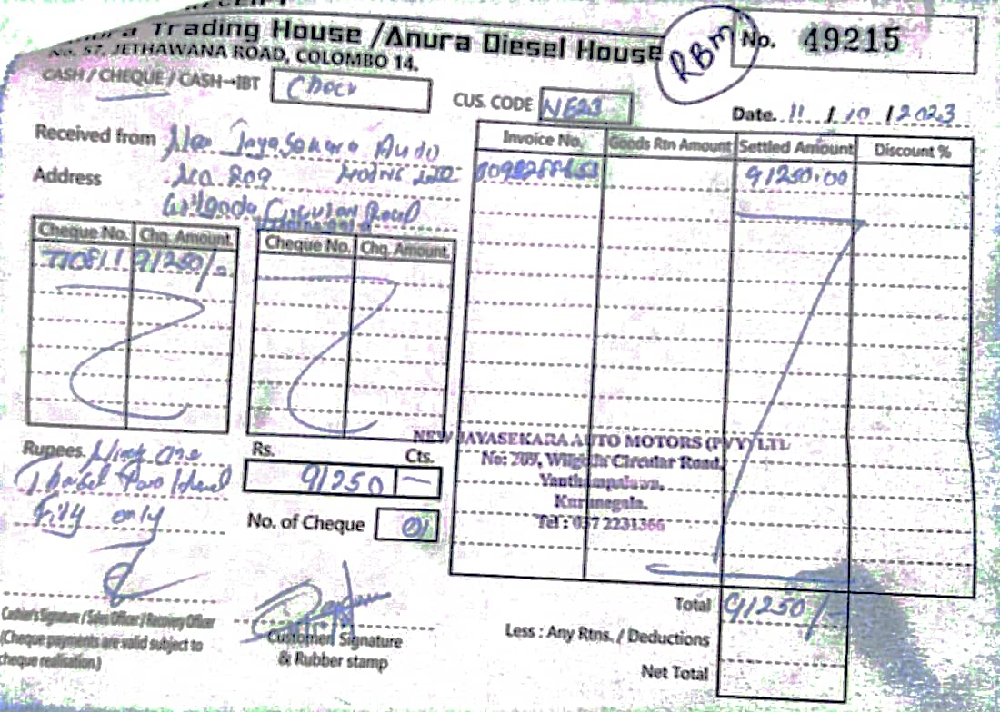 Trading House / Anura Diesel House
No. 57, JETHAWANA ROAD, COLOMBO 14.
RBM
No. 49215
CASH / CHEQUE / CASH-IBT
CUS. CODE NE23
Date. 11 / 10 / 2023
Received from New Jayasekara Auto
Address No 209
Circular Road
Invoice No. Goods Rtn Amount Settled Amount Discount %
91250.00
Cheque No. Chq. Amount. Cheque No. Chq. Amount.
91250/-
NEW JAYASEKARA AUTO MOTORS (PVT) LTD
No: 209, Wilgoda Circular Road,
Yanthampalawa,
Kurunegala.
Tel : 037 2231366
Rupees. Ninety one
Thousand Two Hundred
Fifty only
Rs. Cts.
91250 —
No. of Cheque 01
Cashier's Signature / Sales Officer / Recovery Officer
(Cheque payments are valid subject to
cheque realisation.)
Customer Signature
& Rubber stamp
Total 91250/-
Less : Any Rtns. / Deductions
Net Total